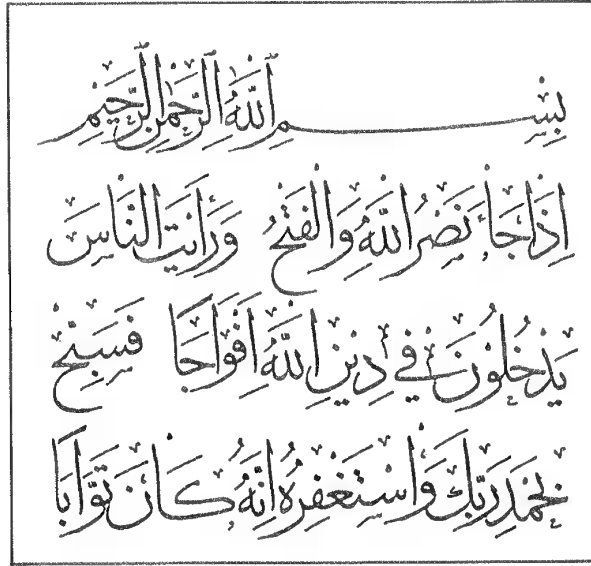 بِسْمِ اللهِ الرَّحْمٰنِ الرَّحِيْمِ
اِذَا جَاۤءَ نَصْرُ اللهِ وَالْفَتْحُ وَرَاَيْتَ النَّاسَ
يَدْخُلُوْنَ فِيْ دِيْنِ اللهِ اَفْوَاجًا فَسَبِّحْ
بِحَمْدِ رَبِّكَ وَاسْتَغْفِرْهُ اِنَّهُ كَانَ تَوَّابًا